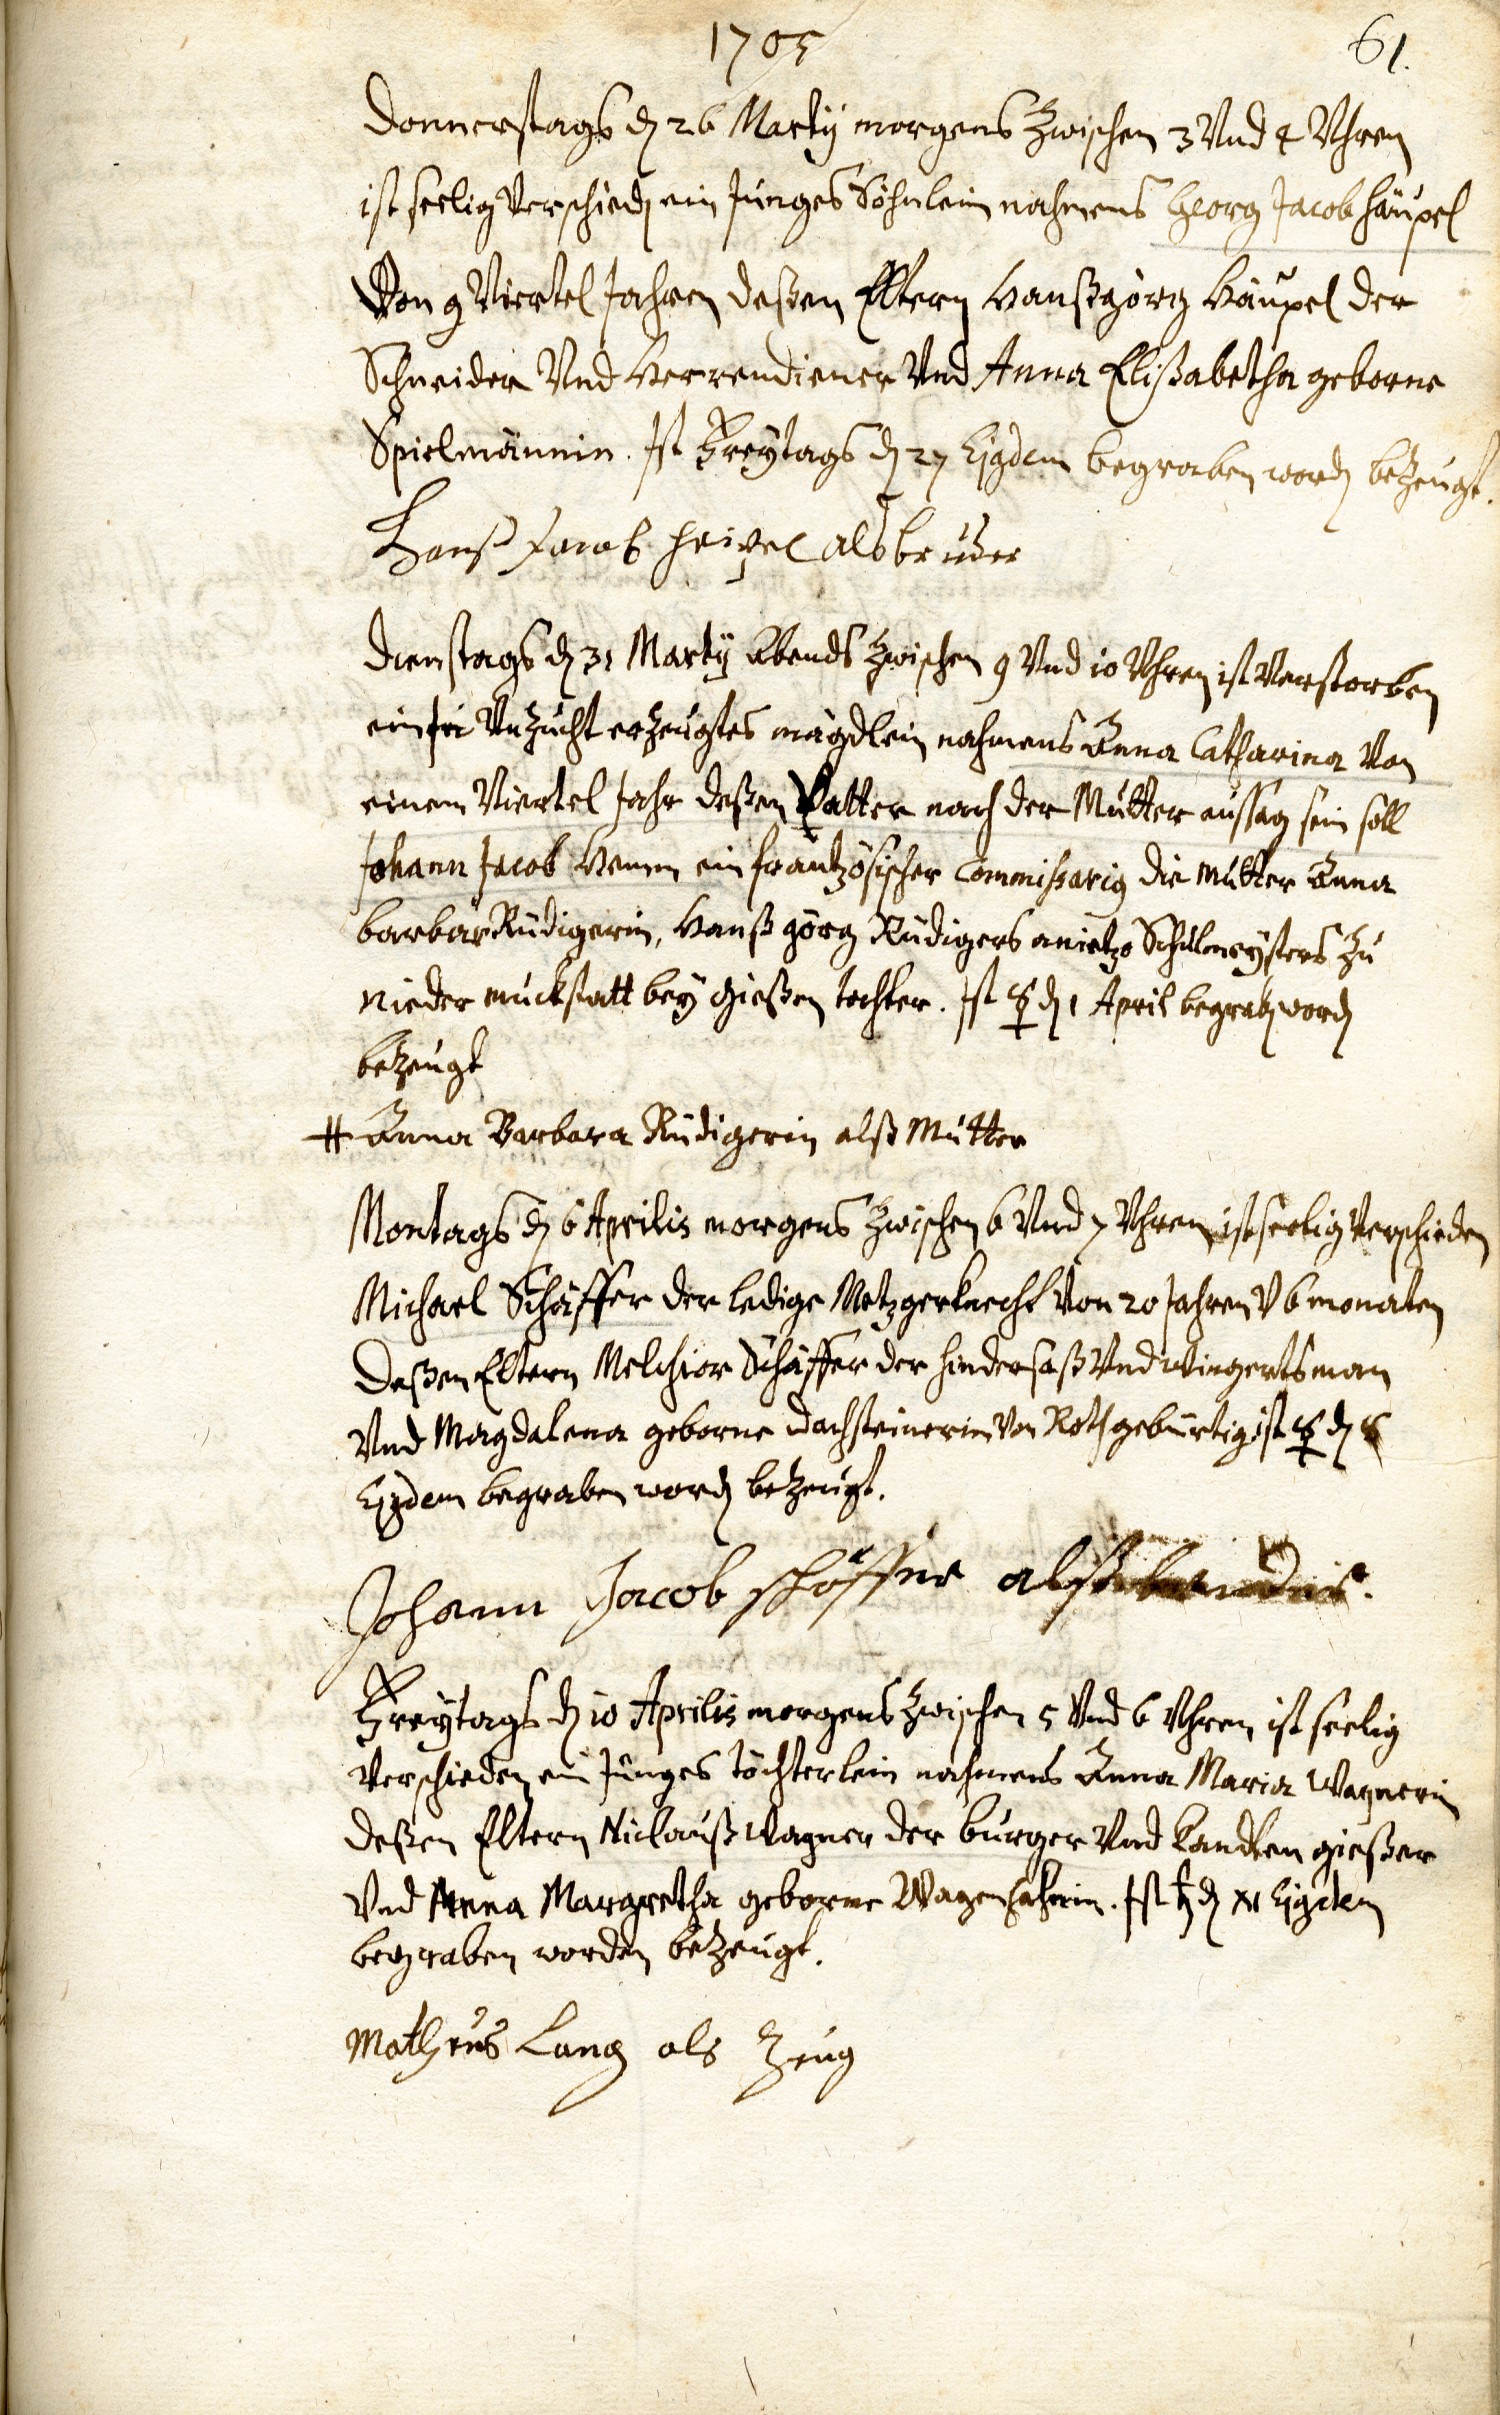 1705
61.
Donnerstags d 26 Martÿ morgens zwischen 3 Vnd 4 Vhren
ist seelig Verschied ein Junges Söhnlein nahmens Georg Jacob Häupel
Von 9 Viertel Jahren deßen Eltern Hanßgörg Häupel der
Schneider Vnd Herrendiener Vnd Anna Elißabetha geborne
Spielmännin. Ist Freÿtags d 27 Ejgdem begraben word bezeugt.
Hanß Jacob heipel als bruder
Dienstags d 31 Martÿ Abends zwischen 9 Vnd 10 Vhren ist Verstorben
ein in Vnzucht erzeugtes mägdlein nahmens Anna Catharina Von
einem Viertel Jahr deßen Vatter nach der Mutter aussag sein soll
Johann Jacob Hemm ein frantzösischer Commißarig die Mutter Anna
barbar Rüdigerin, Hanß görg Rüdigers anietzo Schulmeÿsters zu
Nieder muckstatt beÿ Gießen tochter. Ist ☿ d 1 April begrab word
bezeugt
# Anna Barbara Rüdigerin alß Mutter
Montags d 6 Aprilis morgens zwischen 6 Vnd 7 Vhren ist seelig Verschieden
Michael Schäffer der ledige Metzgerknecht Von 20 Jahren V 6 monaten
deßen Eltern Melchior Schäffer der hindersaß Vnd Wingertsman
Vnd Magdalena geborne Dachsteinerin Von Roth gebürtig ist ☿ d 8
Ejgdem begraben word bezeugt.
Johann Jacob schöffer alß
Freÿtags d 10 Aprilis morgens zwischen 5 Vnd 6 Vhren ist seelig
Verschieden ein Junges Töchterlein nahmens Anna Maria Wagnerin
deßen Eltern Niclauß Wagner der burger Vnd Kandten gießer
Vnd Anna Margretha geborne. Ist ♄ d XI Ejgdem
begraben worden bezeugt.
Matheus Lang als Zeug